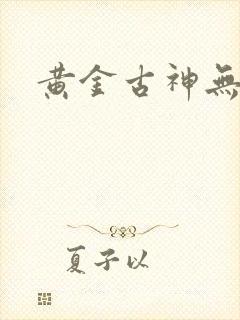 黄金古神無
夏子以